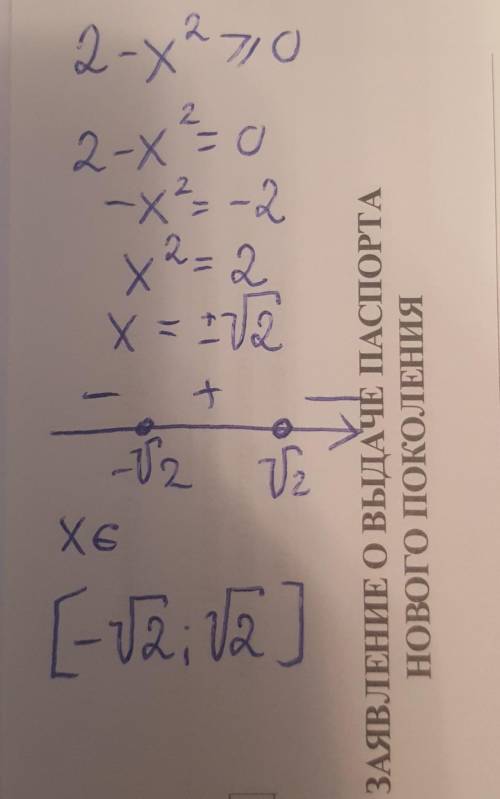 2 - x² ⩾ 0
2 - x² = 0
-x² = -2
x² = 2
x = ±√2
- + -
-√2 √2
x ∈
[-√2; √2]
ЗАЯВЛЕНИЕ О ВЫДАЧЕ ПАСПОРТА
НОВОГО ПОКОЛЕНИЯ